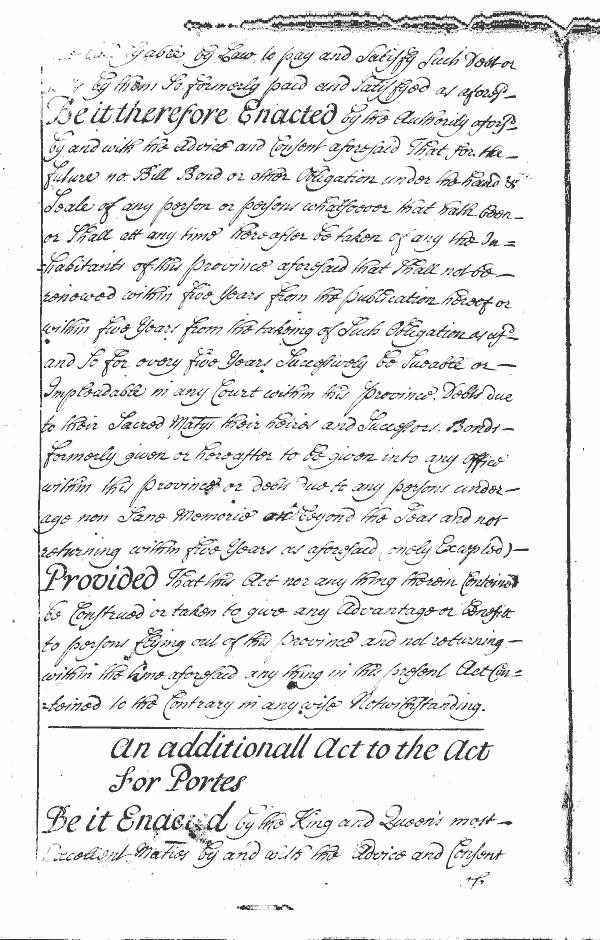 by Law to pay and Satisfy Such Debt or
by them So formerly paid and Satisfyed as afores-
Be it therefore Enacted by the Authority afors-
by and with the Advice and Consent aforesaid That for the
future no Bill Bond or other Obligation under the hand &
Seale of any person or persons whatsoever that hath been
or Shall att any time hereafter be taken of any the In=
=habitants of this Province aforesaid that Shall not be
renewed within five Years from the publication hereof or
within five Years from the takeing of Such Obligation as af-
and So for every five Years Successively be Sueable or
Impleadable in any Court within this Province. Debts due
to their Sacred Matys their heires and Successors. Bonds
formerly given or hereafter to be given into any Office
within this Province or debts due to any persons under
age non Sane Memorie beyond the Seas and not
returning within five Years as aforesaid onely Excepted)
Provided That this Act nor any thing therein Conteined
be Construed or taken to give any Advantage or benefit
to persons flying out of this Province and not returning
within the time aforesaid any thing in this present Act Con=
=teined to the Contrary in any wise Notwithstanding.
An additionall Act to the Act
For Portes
Be it Enacted by the King and Queens most
Excellent Maties by and with the Advice and Consent